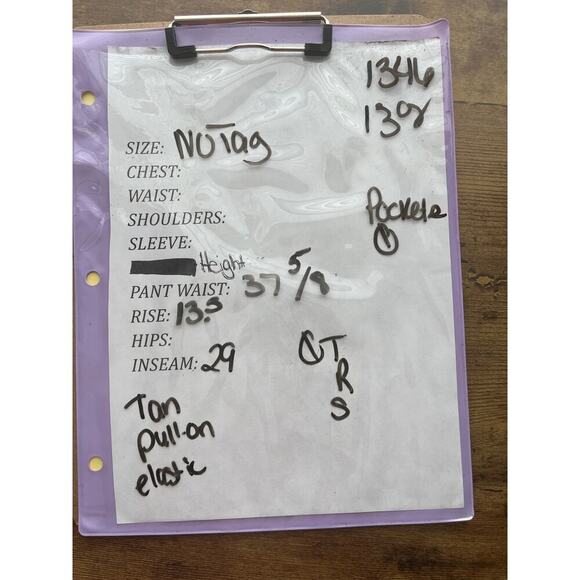 1346
1392
SIZE: No Tag
CHEST:
WAIST:
SHOULDERS:
Pockets
SLEEVE:
Height
PANT WAIST: 37 5/8
RISE: 13.5
HIPS:
T
INSEAM: 29
R
S
Tan
pull-on
elastic